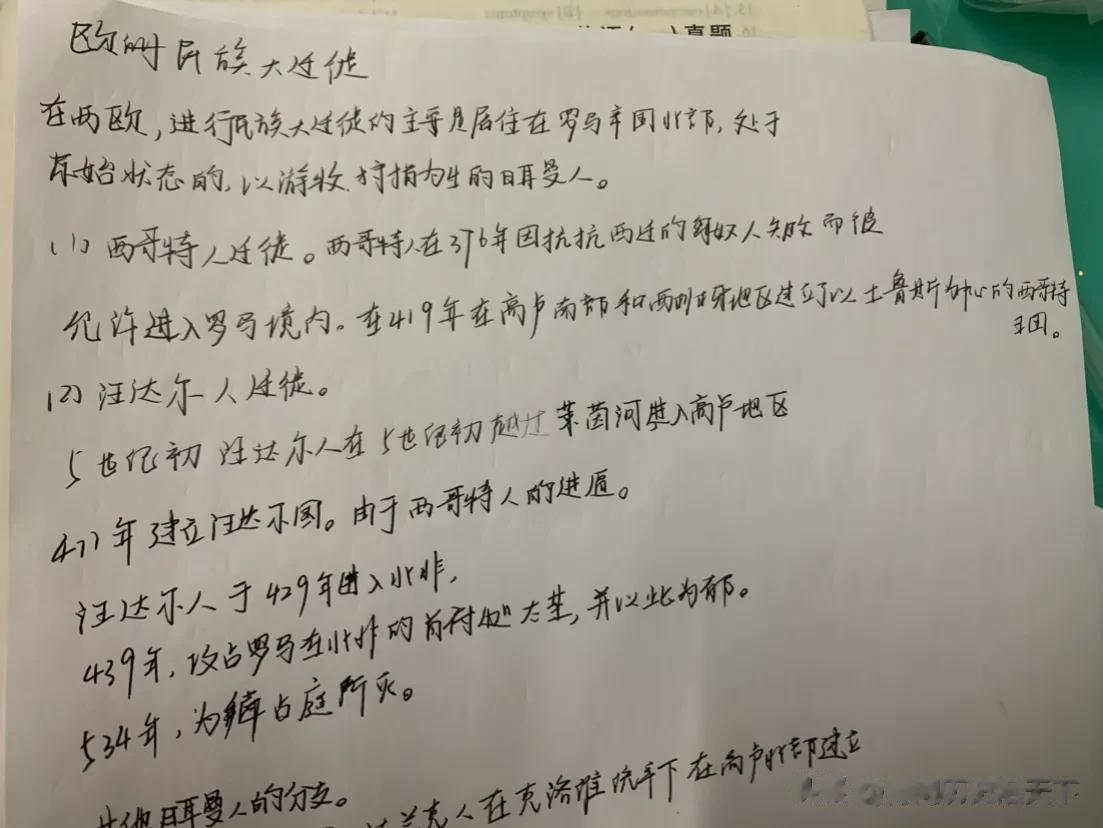 真题
欧洲民族大迁徙
在西欧,进行民族大迁徙的主要是居住在罗马帝国北部,处于
原始状态的,以游牧、狩猎为生的日耳曼人。
(1) 西哥特人迁徙。西哥特人在376年因抗抗西迁的匈奴人失败而被
允许进入罗马境内。在419年在高卢南部和西班牙地区建立了以土鲁斯为中心的西哥特
王国。
(2) 汪达尔人迁徙。
5世纪初 汪达尔人在5世纪初越过莱茵河进入高卢地区
411年建立汪达尔国。由于西哥特人的进逼。
汪达尔人于429年进入北非,
439年,攻占罗马在北非的首府迦太基,并以此为都。
534年,为拜占庭所灭。
其他日耳曼人的分支。
法兰克人在克洛维统率下在高卢北部建立